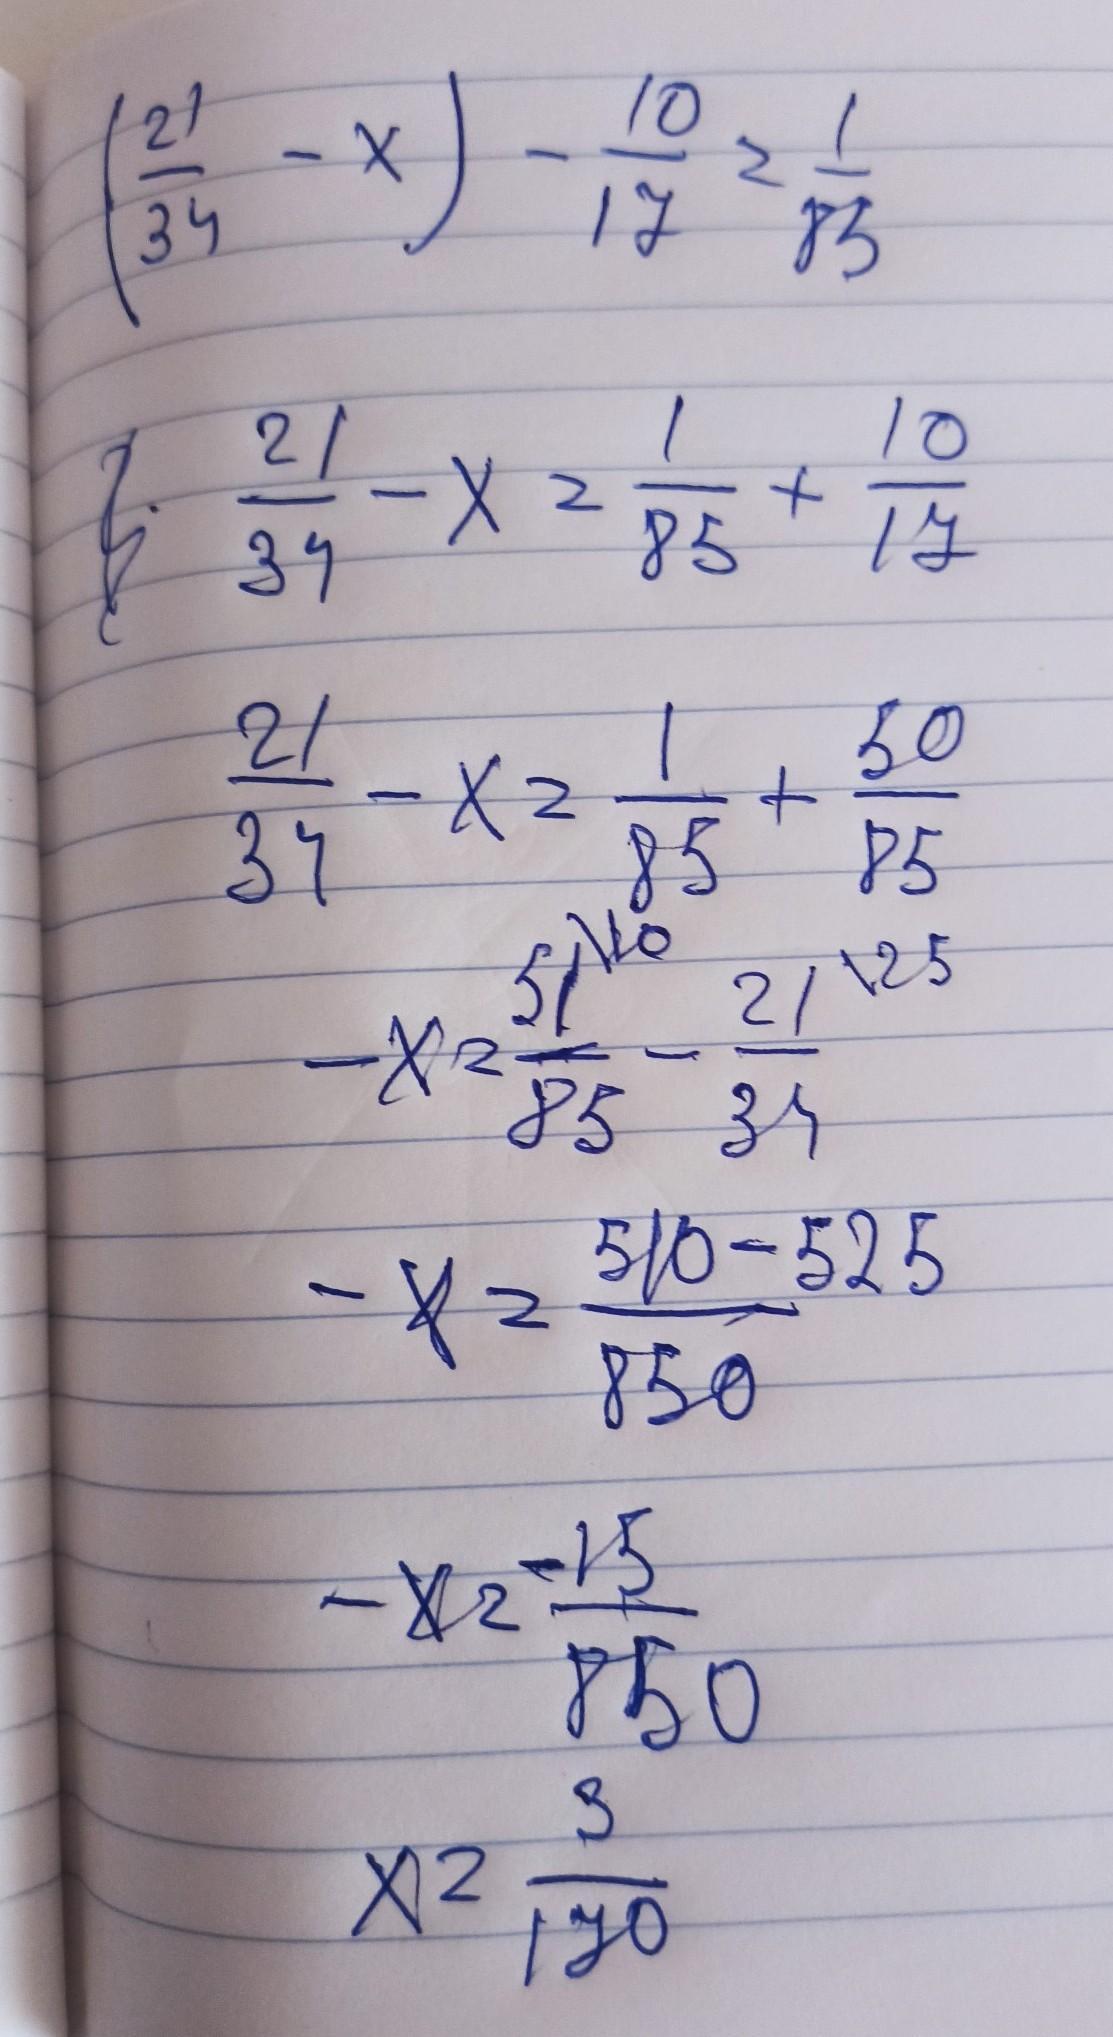 (21/34 - x) - 10/17 = 1/85
21/34 - x = 1/85 + 10/17
21/34 - x = 1/85 + 50/85
-x = 51\10/85 - 21\25/34
-x = 510-525/850
-x = -15/850
x = 3/170